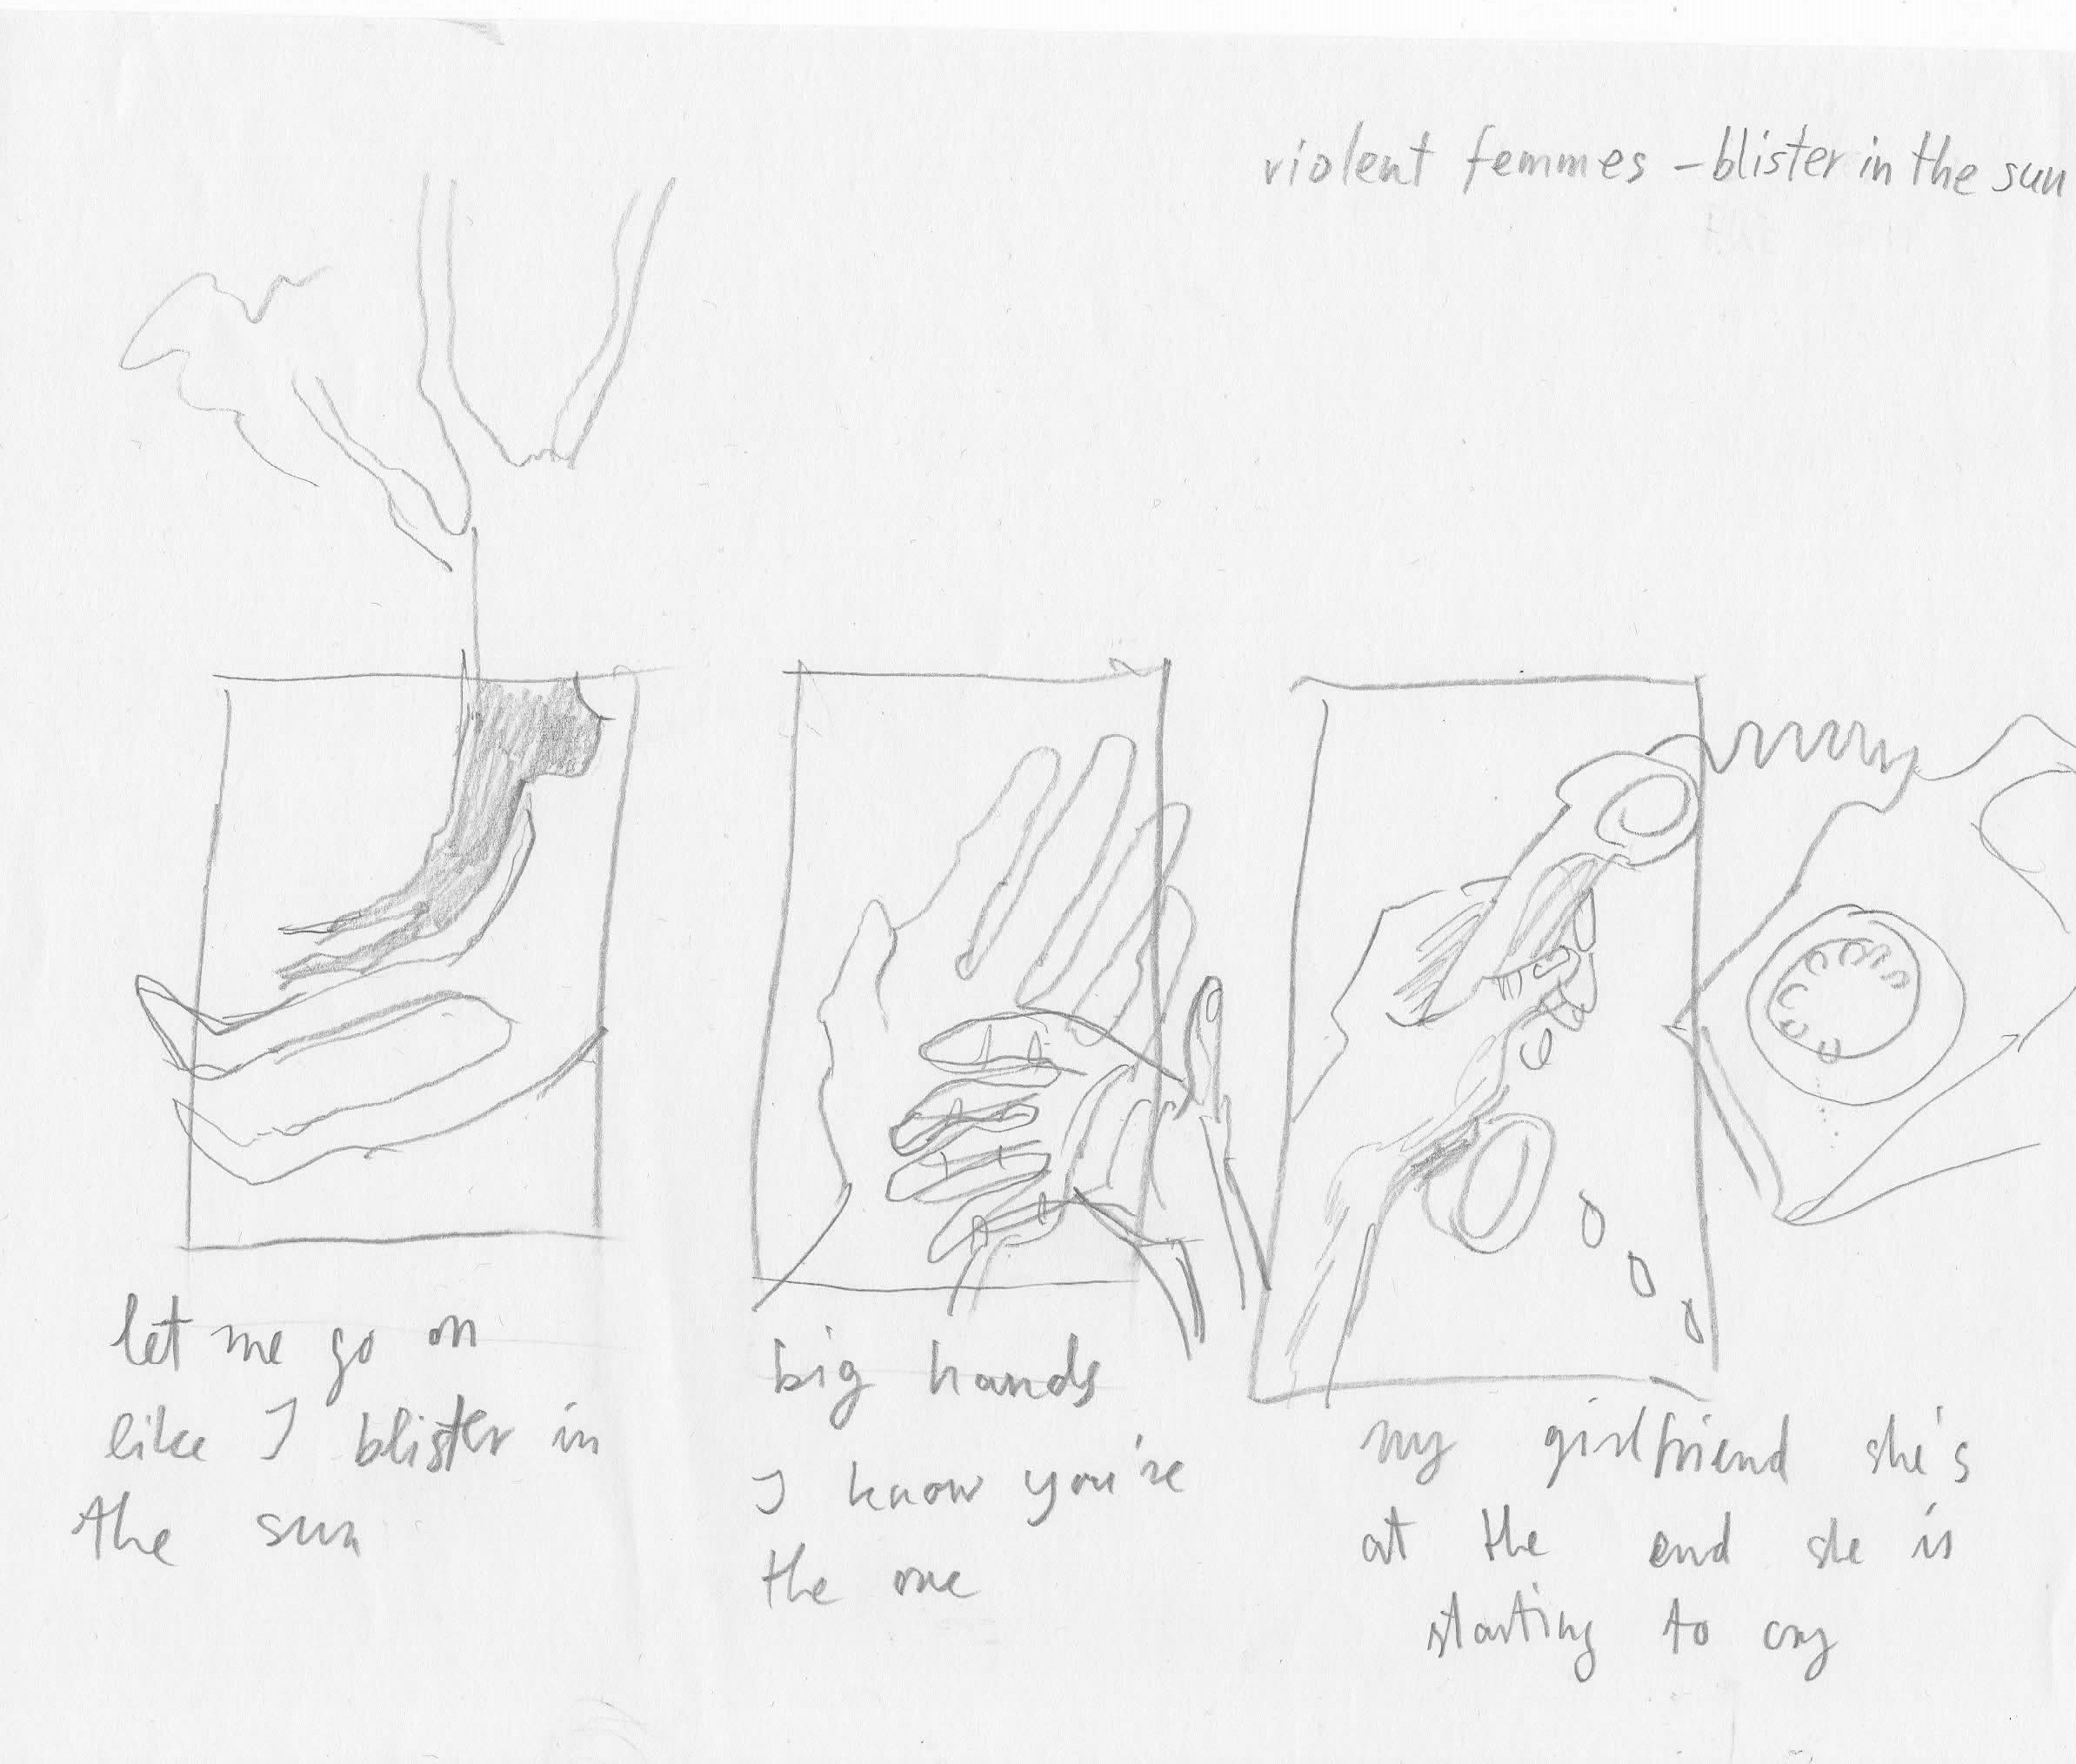 violent femmes - blister in the sun
let me go on
like I blister in
the sun
big hands
I know you're
the one
my girlfriend she's
at the end she is
starting to cry